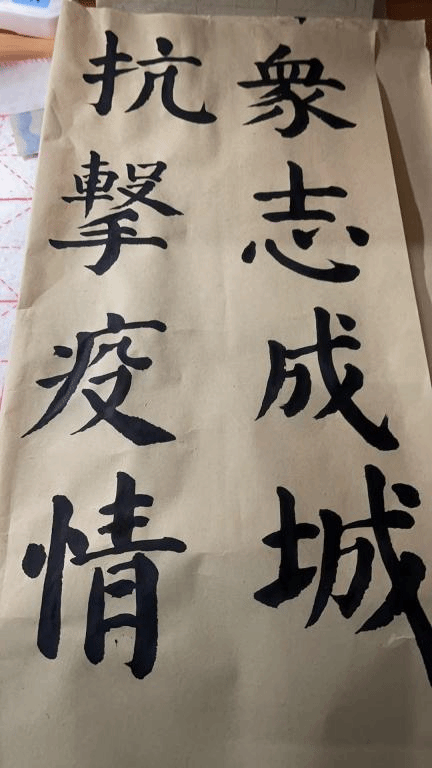 衆志成城
抗撃疫情